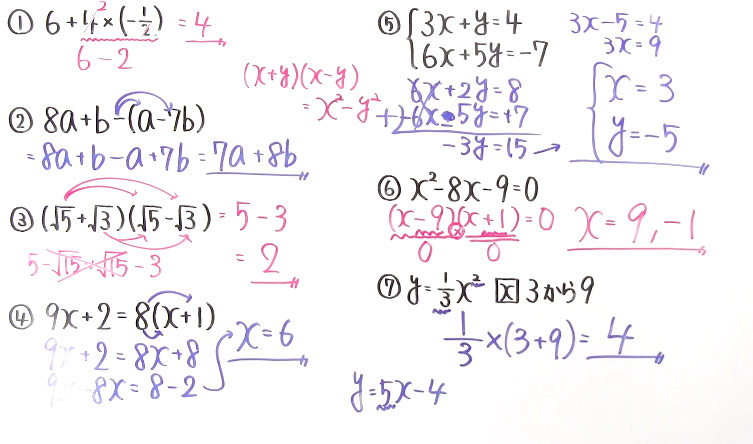 ① 6+4²×(-1/2) = 4
6-2
② 8a+b-(a-7b)
= 8a+b-a+7b = 7a+8b
(x+y)(x-y)
= x²-y²
③ (√5+√3)(√5-√3) = 5-3
5-√15+√15-3 = 2
④ 9x+2=8(x+1)
9x+2=8x+8
9x-8x=8-2
x=6
⑤ {3x+y=4
6x+5y=-7
6x+2y=8
+)-6x-5y=+7
-3y=15
3x-5=4
3x=9
{x=3
y=-5
⑥ x²-8x-9=0
(x-9)(x+1)=0 x=9,-1
0 × 0
⑦ y=1/3x² x 3から9
1/3×(3+9)=4
y=5x-4